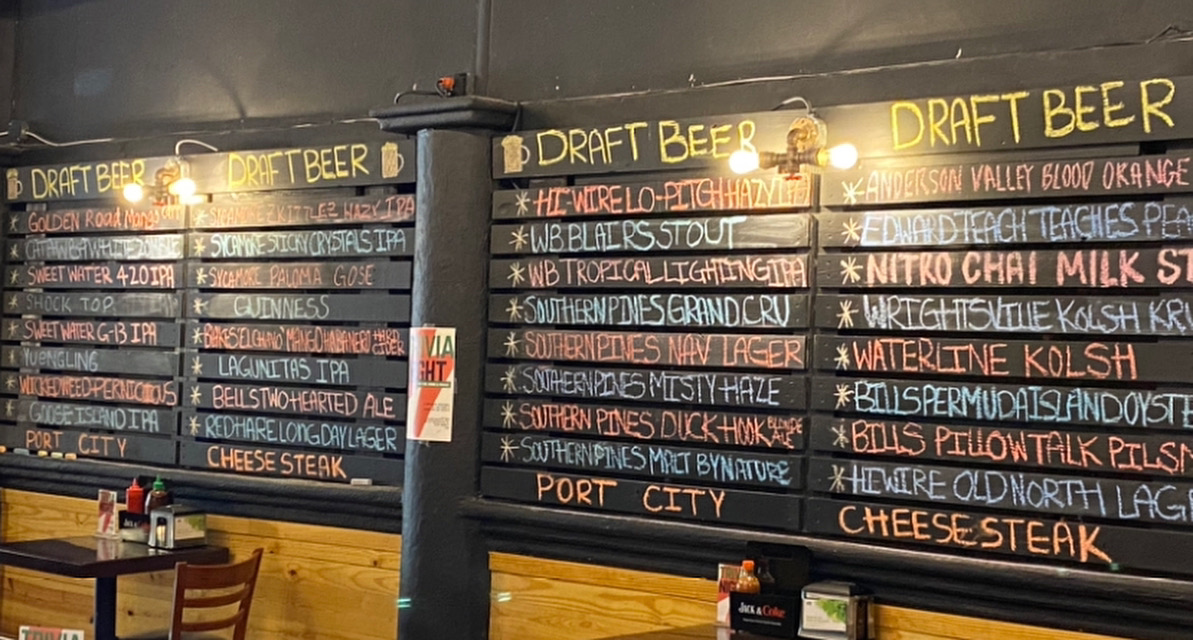 DRAFT BEER
* GOLDEN ROAD MANGO
* CATAWBA WHITE ZOMBIE
* SWEET WATER 420 IPA
* SHOCK TOP
* SWEET WATER G-13 IPA
* YUENGLING
* WICKED WEED PERNICIOUS
* GOOSE ISLAND IPA
PORT CITY
DRAFT BEER
* HAZY IPA
* SYCAMORE STICKY CRYSTALS IPA
* SYCAMORE PALOMA GOSE
* GUINNESS
* MANGO HABANERO HARD CIDER
* LAGUNITAS IPA
* BELLS TWO HEARTED ALE
* RED HARE LONG DAY LAGER
CHEESE STEAK
VIA
HT
DRAFT BEER
* HI-WIRE LO-PITCH HAZY IPA
* WB BLAIRS STOUT
* WB TROPICAL LIGHTING IPA
* SOUTHERN PINES GRAND CRU
* SOUTHERN PINES NAV LAGER
* SOUTHERN PINES MISTY HAZE
* SOUTHERN PINES DUCK HOOK BLONDE ALE
* SOUTHERN PINES MALT BY NATURE
PORT CITY
DRAFT BEER
* ANDERSON VALLEY BLOOD ORANGE
* EDWARD TEACH TEACHES PEA
* NITRO CHAI MILK ST
* WRIGHTSVILLE KOLSH KRU
* WATERLINE KOLSH
* BILLS PERMUDA ISLAND OYSTE
* BILLS PILLOW TALK PILSN
* HI WIRE OLD NORTH LAG
CHEESE STEAK
JACK & Coke
TRIVIA